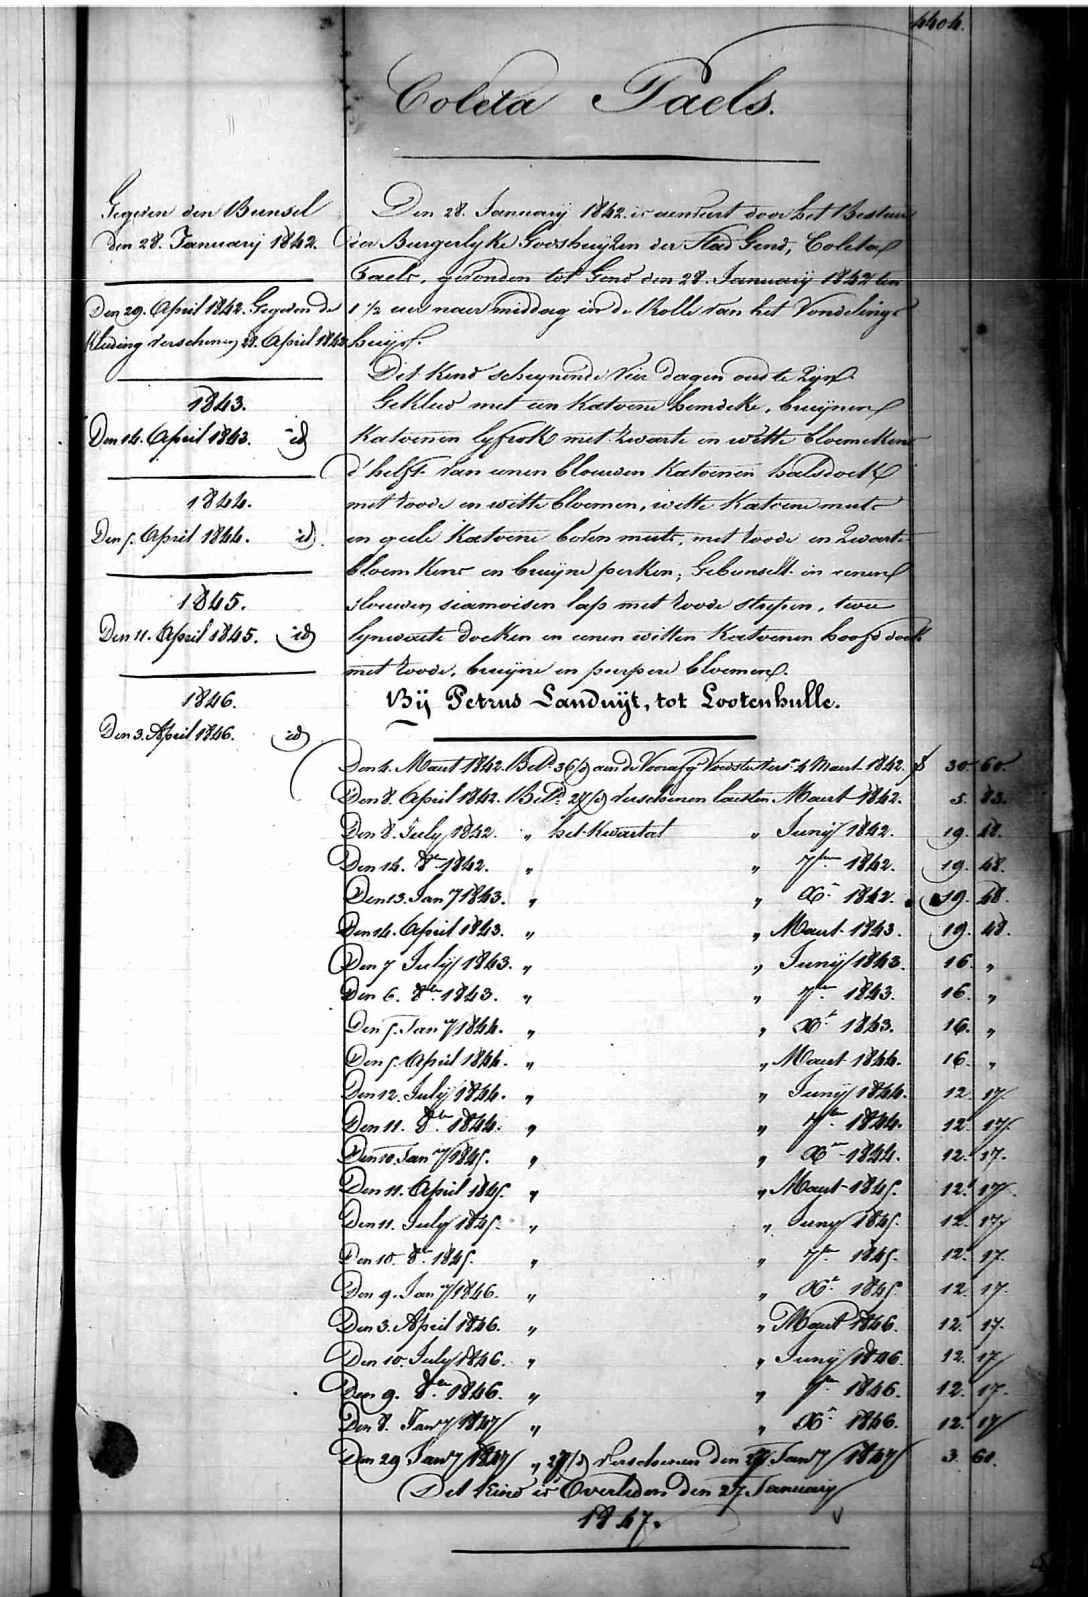 4404.
Coleta Faels.
Gegeven den Bunsel
den 28. January 1842.
Den 29. April 1842. Gegeven de
Kleding verschenen 28. April 1842
1843.
Den 14. April 1843. id
1844.
Den 5. April 1844. id.
1845.
Den 11. April 1845. id
1846.
Den 3. April 1846. id
Den 28. January 1842. is aenveert door het Bestuur
der Burgerlyke Godshuyzen der Stad Gend, Coleta
Faels, gevonden tot Gend den 28. January 1842 ten
1 1/2 ure naer middag in de Rolle van het Vondelings
huys.
Dit Kind schynende vier dagen oud te zyn
Gekleed met een Katoene hemdeke, bruynen
Katoenen lyfrok met zwarte en witte bloemekens
d'helft van eenen blouwen Katoenen halsdoek
met roode en witte bloemen, witte Katoene muts
en geele Katoene boven muts, met roode en zwarte
bloemkens en bruyne perken; Gebunselt in eenen
blouwen siamoisen lap met roode strepen, twee
lynwaete doeken en eenen witten Katoenen hoofd doek
met roode, bruyne en purpere bloemen.
Bij Petrus Landuijt, tot Lootenhulle.
Den 4. Maart 1842. Betd. 36/d aen de Voorafg. Voedster vers. 4 Maart 1842. f 30. 60.
Den 8. April 1842. Betd. 27/d verschenen laesten Maart 1842. 5. 83.
Den 8. July 1842. " het Kwartal " Junij 1842. 19. 48.
Den 14. 8bre 1842. " " 7bre 1842. 19. 48.
Den 13. Jany 1843. " " Xbre 1842. 19. 48.
Den 14. April 1843. " " Maart 1843. 19. 48.
Den 7 July 1843. " " Junij 1843. 16. "
Den 6. 8bre 1843. " " 7bre 1843. 16. "
Den 5. Jany 1844. " " Xbre 1843. 16. "
Den 5. April 1844. " " Maart 1844. 16. "
Den 12. July 1844. " " Junij 1844. 12. 17.
Den 11. 8bre 1844. " " 7bre 1844. 12. 17.
Den 10. Jany 1845. " " Xbre 1844. 12. 17.
Den 11. April 1845. " " Maart 1845. 12. 17.
Den 11. July 1845. " " Juny 1845. 12. 17
Den 10. 8bre 1845. " " 7bre 1845. 12. 17.
Den 9. Jany 1846. " " Xbre 1845. 12. 17.
Den 3. April 1846. " " Maart 1846. 12. 17.
Den 10. July 1846. " " Junij 1846. 12. 17
Den 9. 8bre 1846. " " 7bre 1846. 12. 17.
Den 8. Jany 1847 " " Xbre 1846. 12. 17
Den 29 Jany 1847 " 27/d verschenen den 27 Jany 1847 3. 60.
Dit Kind is Overleden den 27 January
1847.